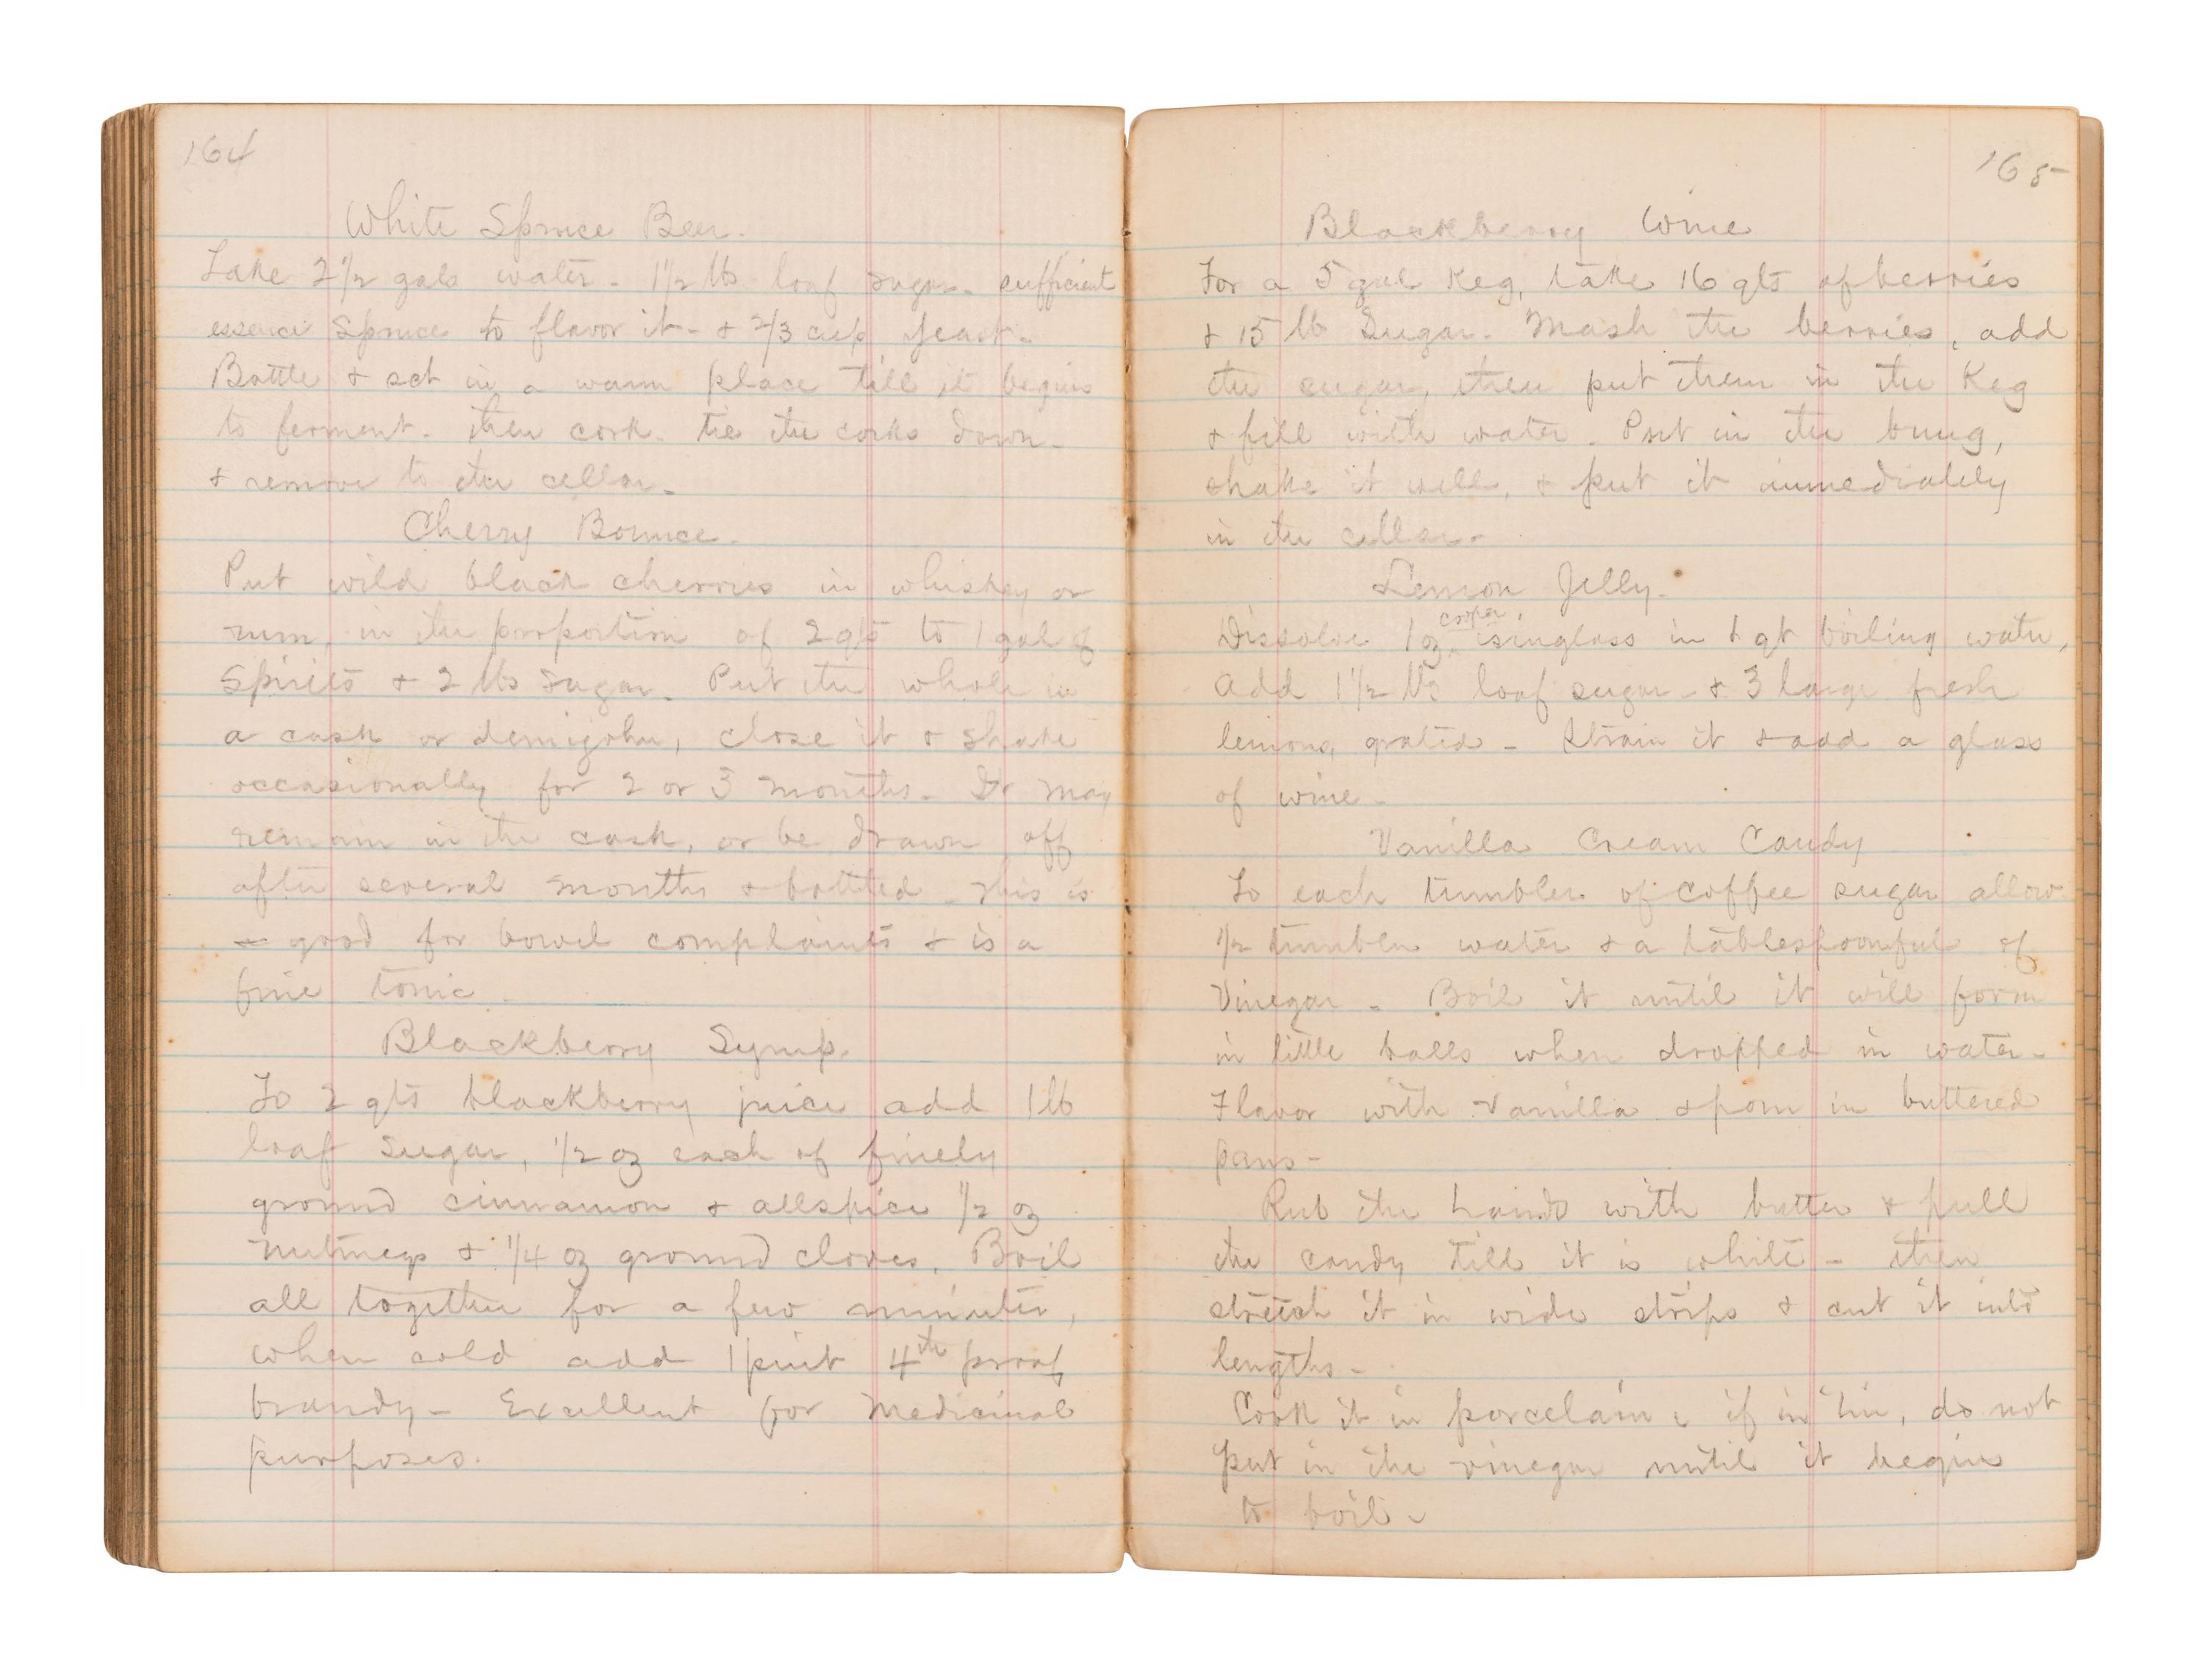 164
White Spruce Beer.
Take 2 1/2 gals water - 1 1/2 lbs loaf sugar - sufficient
essence Spruce to flavor it - & 2/3 cup yeast -
Bottle & set in a warm place till it begins
to ferment - then cork - tie the corks down -
& remove to the cellar -
Cherry Bounce -
Put wild black cherries in whiskey or
rum, in the proportion of 2 qts to 1 gal of
Spirits & 2 lbs sugar. Put the whole in
a cask or demijohn, close it & shake
occasionally for 2 or 3 months - It may
remain in the cask, or be drawn off
after several months & bottled - This is
good for bowel complaints & is a
fine tonic -
Blackberry Syrup.
To 2 qts blackberry juice add 1 lb
loaf sugar, 1/2 oz each of finely
ground cinnamon & allspice 1/2 oz
nutmegs & 1/4 oz ground cloves. Boil
all together for a few minutes,
when cold add 1 pint 4th proof
brandy - Excellent for Medicinal
purposes.
165
Blackberry Wine
For a 5 gal Keg, take 16 qts of berries
& 15 lb Sugar - Mash the berries, add
the sugar, then put them in the Keg
& fill with water - Put in the bung,
shake it well, & put it immediately
in the cellar -
Lemon Jelly -
Cooper
Dissolve 1 oz isinglass in 1 qt boiling water,
add 1 1/2 lbs loaf sugar - & 3 large fresh
lemons, grated - Strain it & add a glass
of wine -
Vanilla Cream Candy
To each tumbler of coffee sugar allow
1/2 tumbler water & a tablespoonful of
Vinegar - Boil it until it will form
in little balls when dropped in water -
Flavor with Vanilla & pour in buttered
pans -
Rub the hands with butter & pull
the candy till it is white - then
stretch it in wide strips & cut it into
lengths -
Cook it in porcelain, if in tin, do not
put in the vinegar until it begins
to boil -